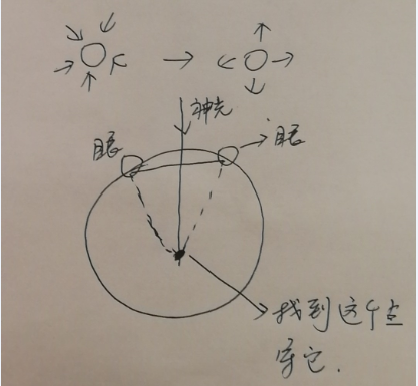 神光
眼
眼
找到这个点
穿它.